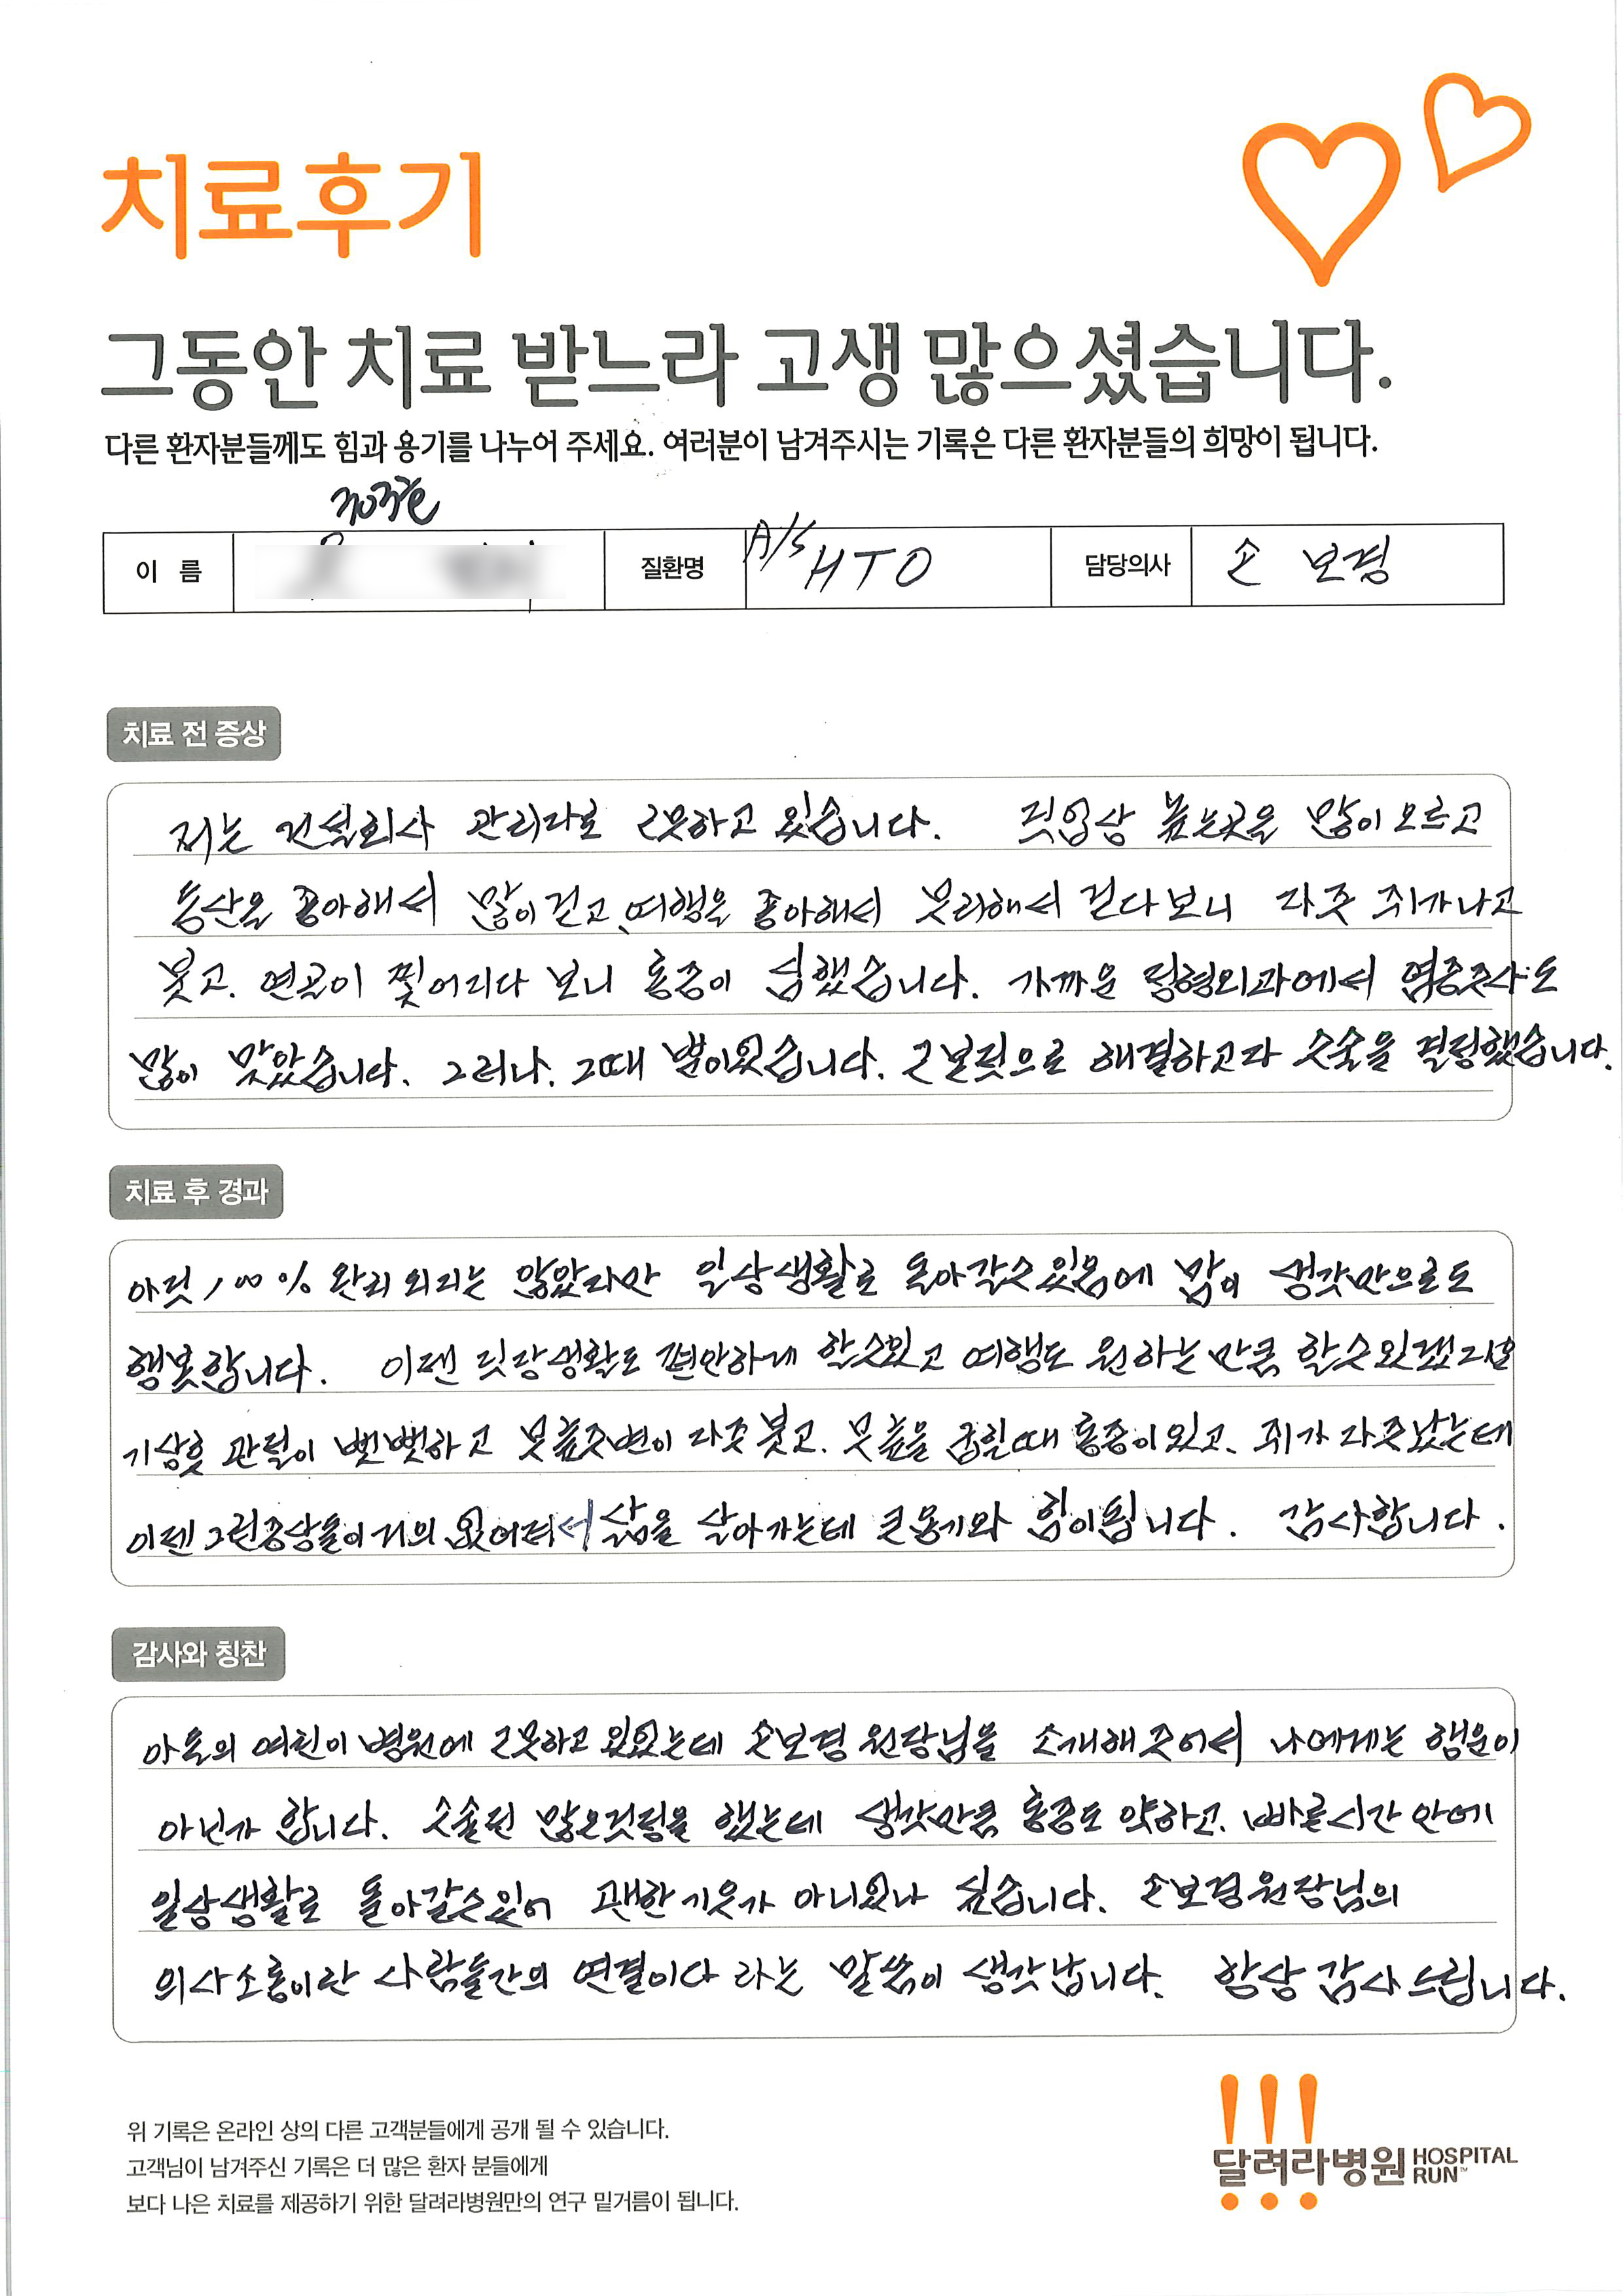 치료후기
그동안 치료 받느라 고생 많으셨습니다.
다른 환자분들께도 힘과 용기를 나누어 주세요. 여러분이 남겨주시는 기록은 다른 환자분들의 희망이 됩니다.
이 름 질환명 A/S HTO 담당의사 손 보경
치료 전 증상
저는 건설회사 관리자로 근무하고 있습니다. 직업상 높는곳을 많이 오르고
등산을 좋아해서 많이 걷고, 여행을 좋아해서 무리해서 걷다보니 자주 쥐가나고
붓고. 연골이 찢어지다 보니 통증이 심했습니다. 가까운 정형외과에서 염증주사도
많이 맞았습니다. 그러나. 그때 뿐이었습니다. 근본적으로 해결하고자 수술을 결정했습니다.
치료 후 경과
아직 100% 완치 외지는 않았지만 일상생활로 돌아갈수 있음에 맘이 생각만으로도
행복합니다. 이젠 직장생활도 편안하게 할수있고 여행도 원하는 만큼 할수있겠지요
기상후 관절이 뻣뻣하고 무릎주변이 자주 붓고. 무릎을 굽힐때 통증이 있고. 쥐가 자주났는데
이젠 그런증상들이 거의 없어져서 삶을 살아가는데 큰용기와 힘이됩니다. 감사합니다.
감사와 칭찬
아들의 여친이 병원에 근무하고 있었는데 손보경 원장님을 소개해 주어서 나에게는 행운이
아닌가 합니다. 수술전 많은걱정을 했는데 생각만큼 통증도 약하고. 빠른시간 안에
일상생활로 돌아갈수있어 괜한 기우가 아니었나 싶습니다. 손보경원장님의
의사소통이란 사람들간의 연결이다 라는 말씀이 생각납니다. 항상 감사드립니다.
위 기록은 온라인 상의 다른 고객분들에게 공개 될 수 있습니다.
고객님이 남겨주신 기록은 더 많은 환자 분들에게
보다 나은 치료를 제공하기 위한 달려라병원만의 연구 밑거름이 됩니다.
달려라병원 HOSPITAL RUN™